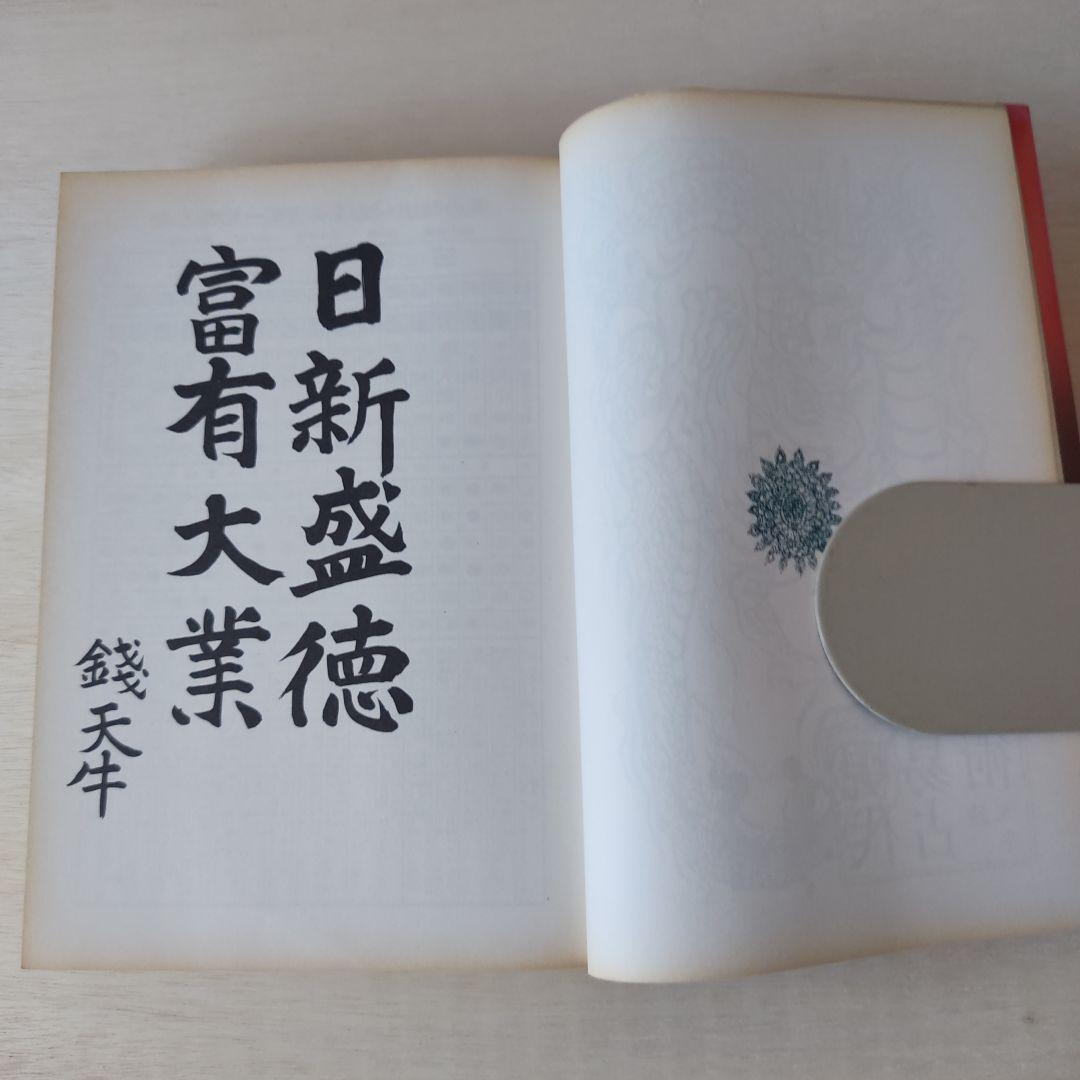 日新盛徳
富有大業
錢天牛